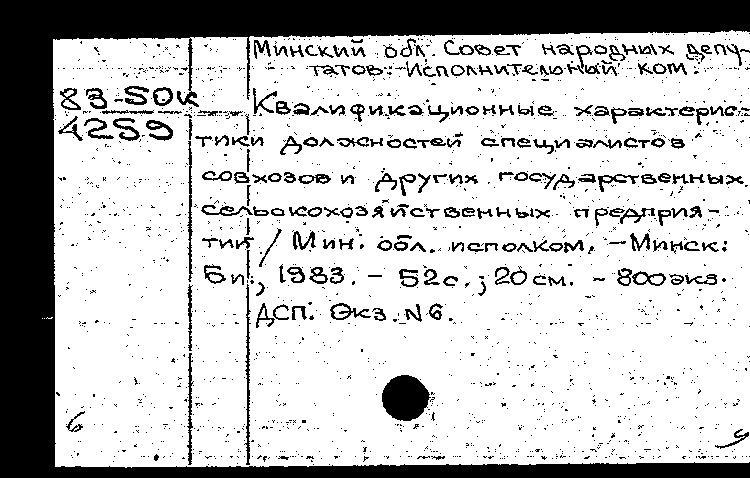 Минский обл. Совет народных депу-
татов. Исполнительный ком.
83-50к
4259
Квалификационные характерис-
тики должностей специалистов
совхозов и других государственных
сельскохозяйственных предприя-
тий / Мин. обл. исполком. - Минск:
Б.и., 1983. - 52с.; 20см. - 800экз.
ДСП. Экз. N6.
6